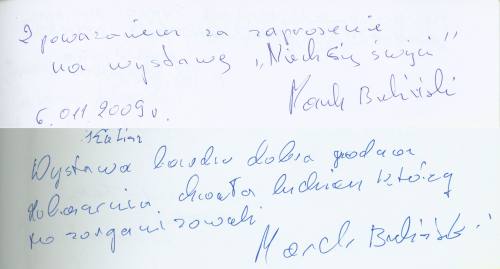 Z poważaniem za zaproszenie
na wystawę „Niech się święci”
6.011 2009 r. Marek Buliński
Wystawa bardzo dobra godna
zobaczenia chwała ludziom którzy
to zorganizowali.
Marek Buliński